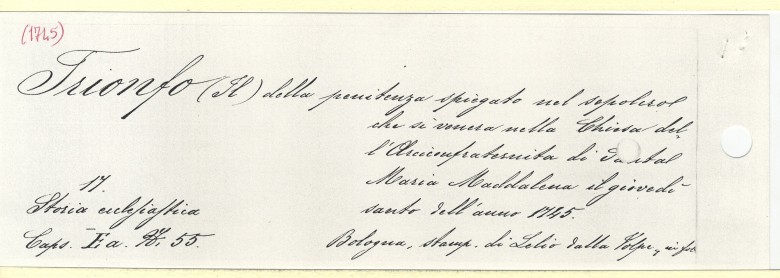 (1745)
Trionfo (Il) della penitenza spiegato nel sepolcro
che si venera nella Chiesa del-
l'Arciconfraternita di Santa
Maria Maddalena il giovedì
santo dell'anno 1745.
Bologna, stamp. di Lelio dalla Volpe, in fol.
17.
Storia ecclesiastica
Caps. No. 55.